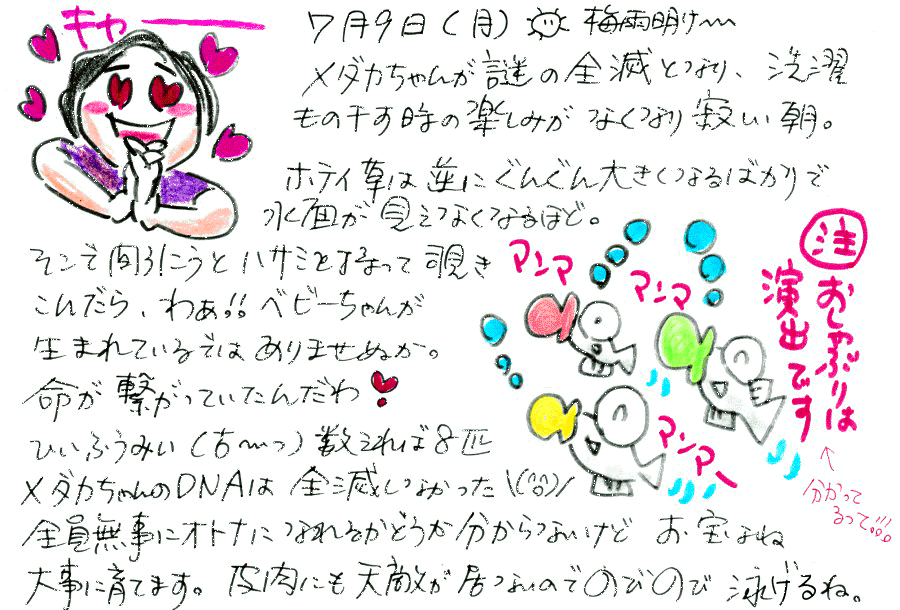 キャー
7月9日(月) 梅雨明け〜
メダカちゃんが謎の全滅となり、洗濯
もの干す時の楽しみがなくなり寂しい朝。
ホテイ草は逆にぐんぐん大きくなるばかりで
水面が見えなくなるほど。
そこで間引こうとハサミを持って覗き
こんだら、わぁ!!ベビーちゃんが
生まれているではありませぬか。
命が繋がっていたんだわ
ひいふうみい(古〜っ)数えれば8匹
メダカちゃんのDNAは全滅しなかった\(^o^)/
全員無事にオトナになれるかどうか分からないけど お宝はね
大事に育てます。皮肉にも天敵が居ないのでのびのび泳げるね。
マンマ
マンマ
マンマー
注
おしゃぶりは
演出です
↑
分かって
るって!!!